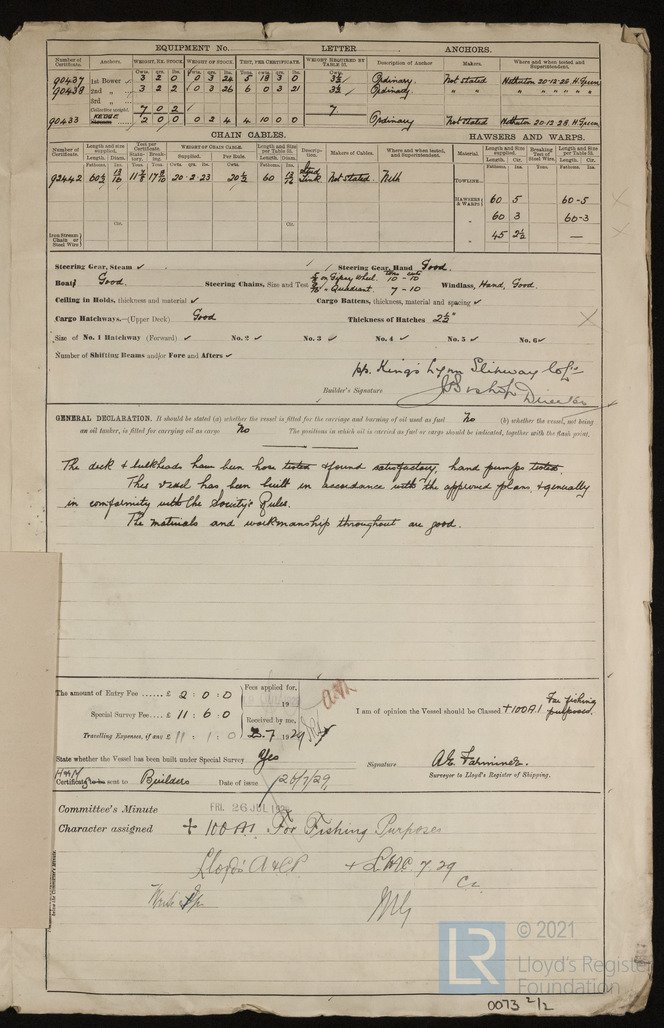 EQUIPMENT No. LETTER ANCHORS.
Number of Certificate. Anchors. WEIGHT, EX. STOCK. WEIGHT OF STOCK. TEST, PER CERTIFICATE. WEIGHT REQUIRED BY TABLE 31. Description of Anchor Makers. Where and when tested and Superintendent.
Cwts. qrs. lbs.
90437 1st Bower 3 2 0 0 3 24 5 18 3 0 3½ Ordinary. Not stated Netherton 20-12-28. H. Green
90438 2nd " 3 2 2 0 3 26 6 0 3 21 3½ Ordinary. " " " " " "
3rd "
Collective weight. 7 0 2 7
90433 KEDGE 2 0 0 0 2 4 4 10 0 0 Ordinary Not stated Netherton 20-12-28. H. Green
CHAIN CABLES. HAWSERS AND WARPS.
Number of Certificate. Length and size supplied. Test per Certificate. WEIGHT OF CHAIN CABLE. Length and Size per Table 31. Description. Makers of Cables. Where and when tested, and Superintendent. Material Length and Size supplied. Breaking Test of Steel Wire. Length and Size per Table 31.
Length. Diam. Supplied. Per Rule. Length. Diam. Length. Cir. Length. Cir.
Fathoms. Ins. Tons. Tons. Cwts. qrs. lbs. Cwts. Fathoms. Ins. Fathoms. Ins. Tons. Fathoms. Ins.
92442 60½ 20-2-23 20½ 60 Stud Link Not stated. Neth
TOWLINE
HAWSERS & WARPS 60 5 60-5
" 60 3 60-3
" 45 2½ —
Iron Stream Chain or Steel Wire Cir. Cir.
Steering Gear, Steam ✓ Steering Gear, Hand Good.
Boats Good. Steering Chains, Size and Test on Gipsy Wheel. 10 - 10 " Quadrant. 7 - 10 Windlass, Hand, Good.
Ceiling in Holds, thickness and material ✓ Cargo Battens, thickness, material and spacing ✓
Cargo Hatchways.—(Upper Deck) Good Thickness of Hatches 2½"
Size of No. 1 Hatchway (Forward) ✓ No. 2 ✓ No. 3 ✓ No. 4 ✓ No. 5 ✓ No. 6 ✓
Number of Shifting Beams and/or Fore and Afters ✓
pp. King's Lynn Slipway Co
Builder's Signature J. Bishop Director
GENERAL DECLARATION. It should be stated (a) whether the vessel is fitted for the carriage and burning of oil used as fuel No (b) whether the vessel, not being
an oil tanker, is fitted for carrying oil as cargo No The positions in which oil is carried as fuel or cargo should be indicated, together with the flash point.
The deck & bulkheads have been hose tested & found satisfactory, hand pumps tested.
This vessel has been built in accordance with the approved plans, & generally
in conformity with the Society's Rules.
The materials and workmanship throughout are good.
The amount of Entry Fee ...... £ 2 : 0 : 0 Fees applied for, 19
Special Survey Fee.... £ 11 : 6 : 0 Received by me,
Travelling Expenses, if any £ 11 : 1 : 0 7 1929
I am of opinion the Vessel should be Classed +100A1 For fishing purposes.
State whether the Vessel has been built under Special Survey Yes Signature
Surveyor to Lloyd's Register of Shipping.
Certificate sent to Builders Date of issue 26/7/29
Committee's Minute FRI. 26 JUL 1929
Character assigned + 100A1. For Fishing Purposes
Lloyd's A & CP. + LMC. 7.29
© 2021
LR Lloyd's Register
Foundation
0073 2/2